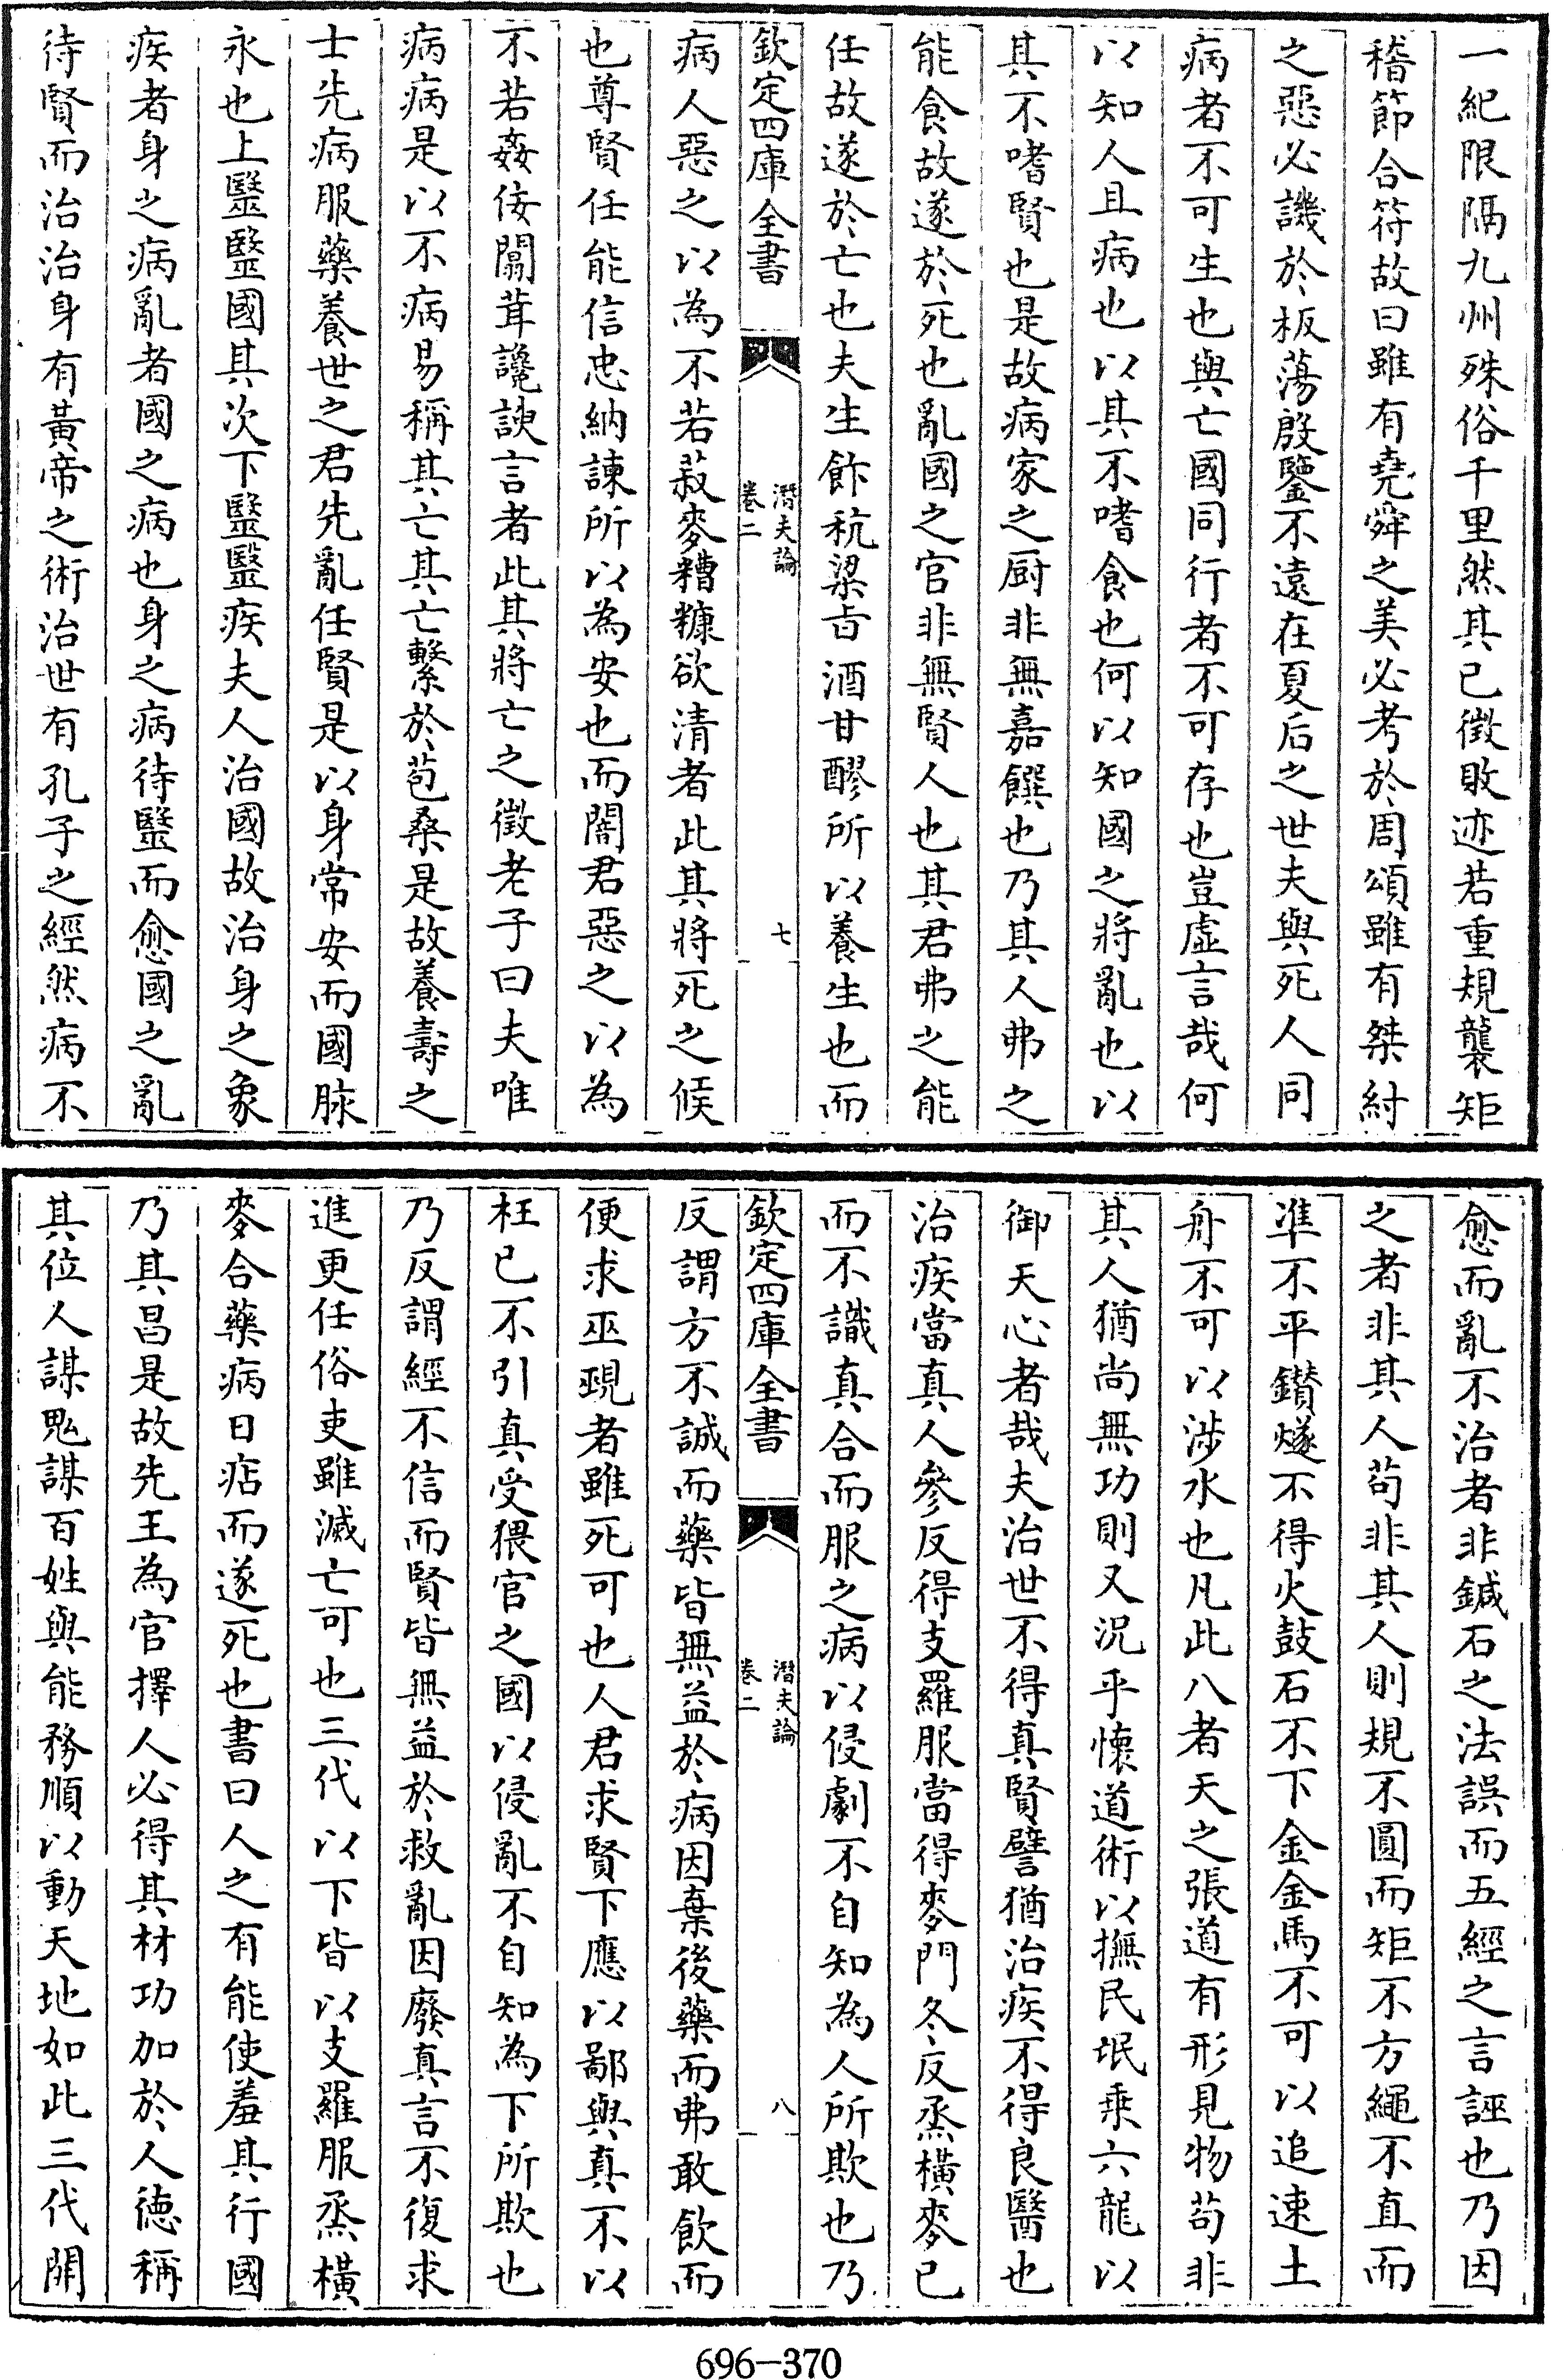 一紀限隔九州殊俗千里然其已徵敗迹若重規襲矩
稽節合符故曰雖有堯舜之美必考於周頌雖有桀紂
之惡必譏於板蕩殷鑒不遠在夏后之世夫與死人同
病者不可生也與亡國同行者不可存也豈虛言哉何
以知人且病也以其不嗜食也何以知國之將亂也以
其不嗜賢也是故病家之厨非無嘉饌也乃其人弗之
能食故遂於死也亂國之官非無賢人也其君弗之能
任故遂於亡也夫生飰秔粱旨酒甘醪所以養生也而
欽定四庫全書
潛夫論
卷二
七
病人惡之以為不若菽麥糟糠欲清者此其將死之候
也尊賢任能信忠納諫所以為安也而闇君惡之以為
不若姦佞闒茸讒諛言者此其將亡之徵老子曰夫唯
病病是以不病易稱其亡其亡繫於苞桑是故養壽之
士先病服藥養世之君先亂任賢是以身常安而國脉
永也上醫醫國其次下醫醫疾夫人治國故治身之象
疾者身之病亂者國之病也身之病待醫而愈國之亂
待賢而治治身有黃帝之術治世有孔子之經然病不
愈而亂不治者非鍼石之法誤而五經之言誣也乃因
之者非其人苟非其人則規不圓而矩不方繩不直而
準不平鑚燧不得火鼓石不下金金馬不可以追速土
舟不可以涉水也凡此八者天之張道有形見物苟非
其人猶尚無功則又況乎懷道術以撫民氓乗六龍以
御天心者哉夫治世不得真賢譬猶治疾不得良醫也
治疾當真人參反得支羅服當得麥門冬反烝橫麥已
而不識真合而服之病以侵劇不自知為人所欺也乃
欽定四庫全書
潛夫論
卷二
八
反謂方不誠而藥皆無益於病因棄後藥而弗敢飲而
便求巫覡者雖死可也人君求賢下應以鄙與真不以
枉已不引真受猥官之國以侵亂不自知為下所欺也
乃反謂經不信而賢皆無益於救亂因廢真言不復求
進更任俗吏雖滅亡可也三代以下皆以支羅服烝橫
麥合藥病日痁而遂死也書曰人之有能使羞其行國
乃其昌是故先王為官擇人必得其材功加於人德稱
其位人謀鬼謀百姓與能務順以動天地如此三代開
696-370